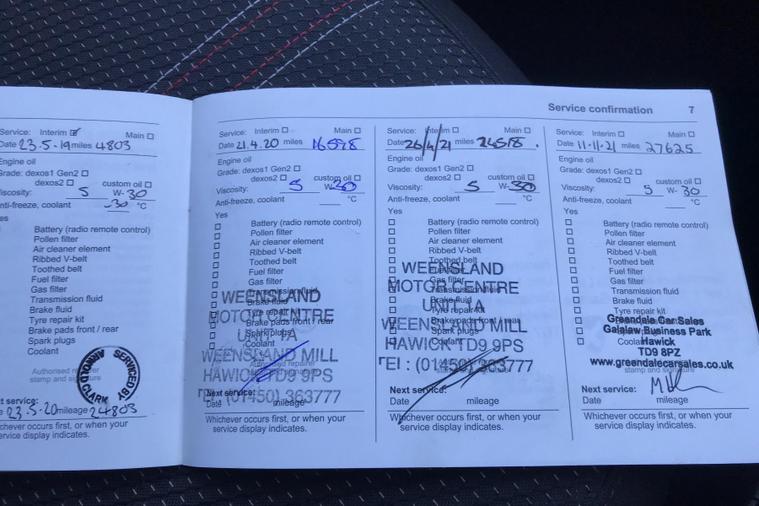 Service confirmation 7
Service: Interim Main
Date 23.5.19 miles 4803
Engine oil
Grade: dexos1 Gen2
dexos2 custom oil
Viscosity: 5 W-30
Anti-freeze, coolant -30 °C
Battery (radio remote control)
Pollen filter
Air cleaner element
Ribbed V-belt
Toothed belt
Fuel filter
Gas filter
Transmission fluid
Brake fluid
Tyre repair kit
Brake pads front / rear
Spark plugs
Coolant
Authorised
stamp and signature
SERVICED BY
ARNOLD CLARK
Next service:
23.5.20 mileage 24803
Whichever occurs first, or when your
service display indicates.
Service: Interim Main
Date 21.4.20 miles
Engine oil
Grade: dexos1 Gen2
dexos2 custom oil
Viscosity: 5 W-30
Anti-freeze, coolant °C
Yes
Battery (radio remote control)
Pollen filter
Air cleaner element
Ribbed V-belt
Toothed belt
Fuel filter
Gas filter
Transmission fluid
Brake fluid
Tyre repair kit
Brake pads front / rear
Spark plugs
Coolant
WEENSLAND
MOTOR CENTRE
UNIT 1A
WEENSLAND MILL
HAWICK TD9 9PS
TEL : (01450) 363777
Next service:
Date mileage
Whichever occurs first, or when your
service display indicates.
Service: Interim Main
Date 26/4/21 miles 24518
Engine oil
Grade: dexos1 Gen2
dexos2 custom oil
Viscosity: 5 W-30
Anti-freeze, coolant °C
Yes
Battery (radio remote control)
Pollen filter
Air cleaner element
Ribbed V-belt
Toothed belt
Fuel filter
Gas filter
Transmission fluid
Brake fluid
Tyre repair kit
Brake pads front / rear
Spark plugs
Coolant
WEENSLAND
MOTOR CENTRE
UNIT 1A
WEENSLAND MILL
HAWICK TD9 9PS
TEl : (01450) 363777
Next service:
Date mileage
Whichever occurs first, or when your
service display indicates.
Service: Interim Main
Date 11.11.21 miles 27625
Engine oil
Grade: dexos1 Gen2
dexos2 custom oil
Viscosity: 5 W-30
Anti-freeze, coolant °C
Yes
Battery (radio remote control)
Pollen filter
Air cleaner element
Ribbed V-belt
Toothed belt
Fuel filter
Gas filter
Transmission fluid
Brake fluid
Tyre repair kit
Coolant
Greendale Car Sales
Galalaw Business Park
Hawick
TD9 8PZ
www.greendalecarsales.co.uk
stamp and signature
Next service:
Date mileage
Whichever occurs first, or when your
service display indicates.